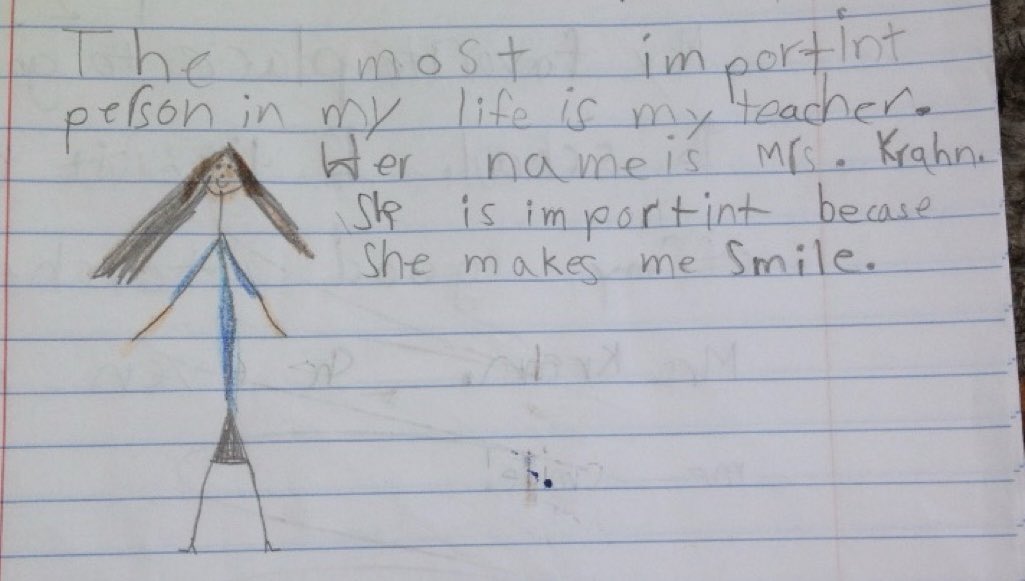 The most importint
person in my life is my teacher.
Her name is Mrs. Krahn.
She is importint becase
she makes me smile.